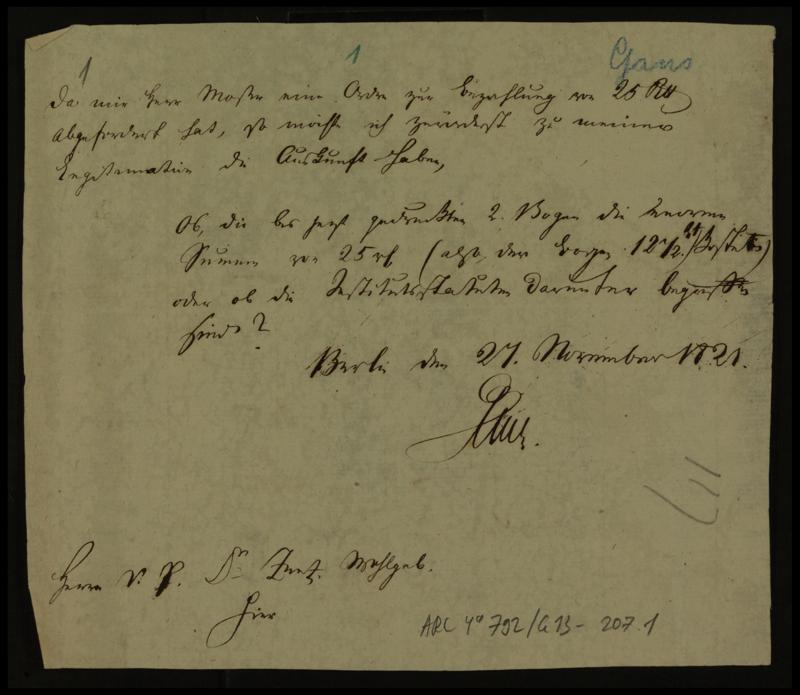 1
1
Gans
Da mir Herr Moser eine Ordre zur Bezahlung von 25 Rtl
abgefordert hat, so möchte ich zuvörderst zu meiner
Legitimation die Auskunft haben,
Ob, die bis jetzt gedruckten 2. Bogen die enorme
Summe von 25 rtl (also der Bogen 12 1/2 rtl kosten)
oder ob die Institutsstatuten darunter begriffen
sind?
Berlin den 27. November 1821.
Gans.
Herrn V. P. Dr Zunz. Wohlgeb.
Hier
ARC 4° 792/G13- 207.1